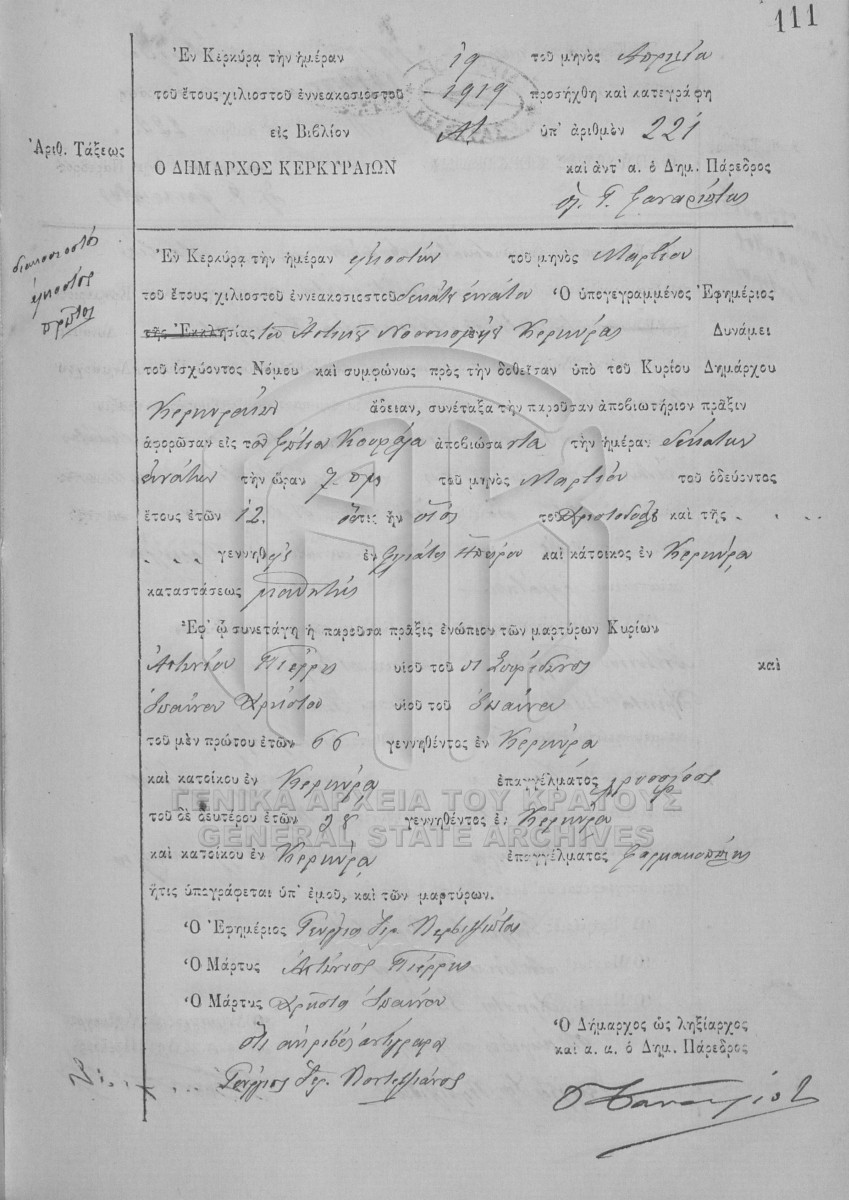 111
Ἐν Κερκύρᾳ τὴν ἡμέραν 19 τοῦ μηνὸς Ἀπριλίου
τοῦ ἔτους χιλιοστοῦ ἐννεακοσιοστοῦ 1919 προσήχθη καὶ κατεγράφη
εἰς Βιβλίον Α! ὑπ' ἀριθμὸν 221
Ἀριθ. Τάξεως
Ὁ ΔΗΜΑΡΧΟΣ ΚΕΡΚΥΡΑΙΩΝ καὶ ἀντ' α. ὁ Δημ. Πάρεδρος
διακοσιοστός
εἰκοστός
πρῶτος
Ἐν Κερκύρᾳ τὴν ἡμέραν εἰκοστὴν τοῦ μηνὸς Μαρτίου
τοῦ ἔτους χιλιοστοῦ ἐννεακοσιοστοῦ δεκάτου ἐννάτου Ὁ ὑπογεγραμμένος Ἐφημέριος
τῆς Ἐκκλησίας τοῦ Ἀστικοῦ Νοσοκομείου Κερκύρας Δυνάμει
τοῦ ἰσχύοντος Νόμου καὶ συμφώνως πρὸς τὴν δοθεῖσαν ὑπὸ τοῦ Κυρίου Δημάρχου
Κερκυραίων ἄδειαν, συνέταξα τὴν παροῦσαν ἀποβιωτήριον πρᾶξιν
ἀφορῶσαν εἰς τὸν Φώτιον ἀποβιώσαντα τὴν ἡμέραν δεκάτην
ἐννάτην τὴν ὥραν 7 πμ τοῦ μηνὸς Μαρτίου τοῦ ὁδεύοντος
ἔτους ἐτῶν 12. ὅστις ἦν υἱὸς τοῦ Χριστοδούλου καὶ τῆς . .
. . γεννηθεὶς ἐν Φιλιάτες Ἠπείρου καὶ κάτοικος ἐν Κερκύρᾳ
καταστάσεως μαθητής
Ἐφ' ᾧ συνετάγη ἡ παροῦσα πρᾶξις ἐνώπιον τῶν μαρτύρων Κυρίων
Ἀντωνίου Πιέρρη υἱοῦ τοῦ Σπυρίδωνος καὶ
Ἰωάννου Χρήστου υἱοῦ τοῦ Ἰωάννου
τοῦ μὲν πρώτου ἐτῶν 66 γεννηθέντος ἐν Κερκύρᾳ
καὶ κατοίκου ἐν Κερκύρᾳ ἐπαγγέλματος
ΓΕΝΙΚΑ ΑΡΧΕΙΑ ΤΟΥ ΚΡΑΤΟΥΣ
τοῦ δὲ δευτέρου ἐτῶν 28 γεννηθέντος ἐν Κερκύρᾳ
GENERAL STATE ARCHIVES
καὶ κατοίκου ἐν Κερκύρᾳ ἐπαγγέλματος
ἥτις ὑπογράφεται ὑπ' ἐμοῦ, καὶ τῶν μαρτύρων.
Ὁ Ἐφημέριος Γεώργιος
Ὁ Μάρτυς Ἀντώνιος Πιέρρης
Ὁ Μάρτυς Χρῆστος Ἰωάννου
ὅτι ἀκριβὲς ἀντίγραφον
Ὁ Δήμαρχος ὡς ληξίαρχος
καὶ α. α. ὁ Δημ. Πάρεδρος
Γεώργιος